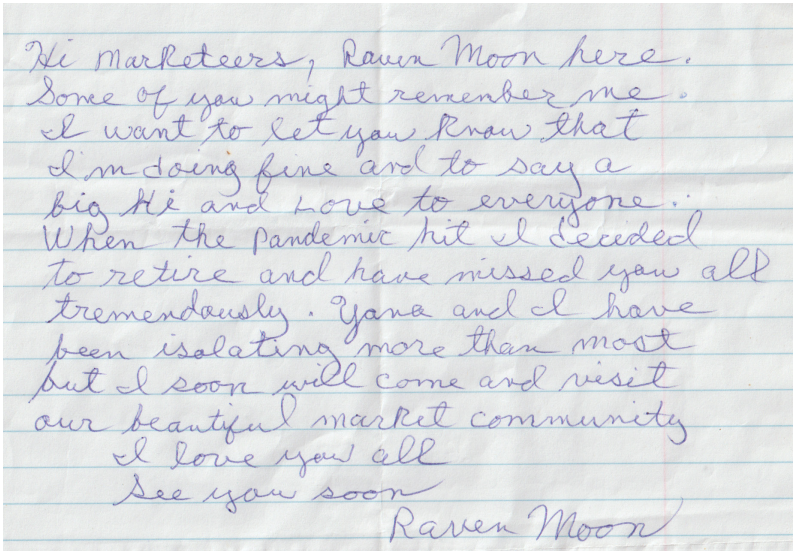 Hi Marketeers, Raven Moon here.
Some of you might remember me.
I want to let you know that
I'm doing fine and to say a
big Hi and Love to everyone.
When the pandemic hit I decided
to retire and have missed you all
tremendously. Yana and I have
been isolating more than most
but I soon will come and visit
our beautiful market community
I love you all
See you soon
Raven Moon